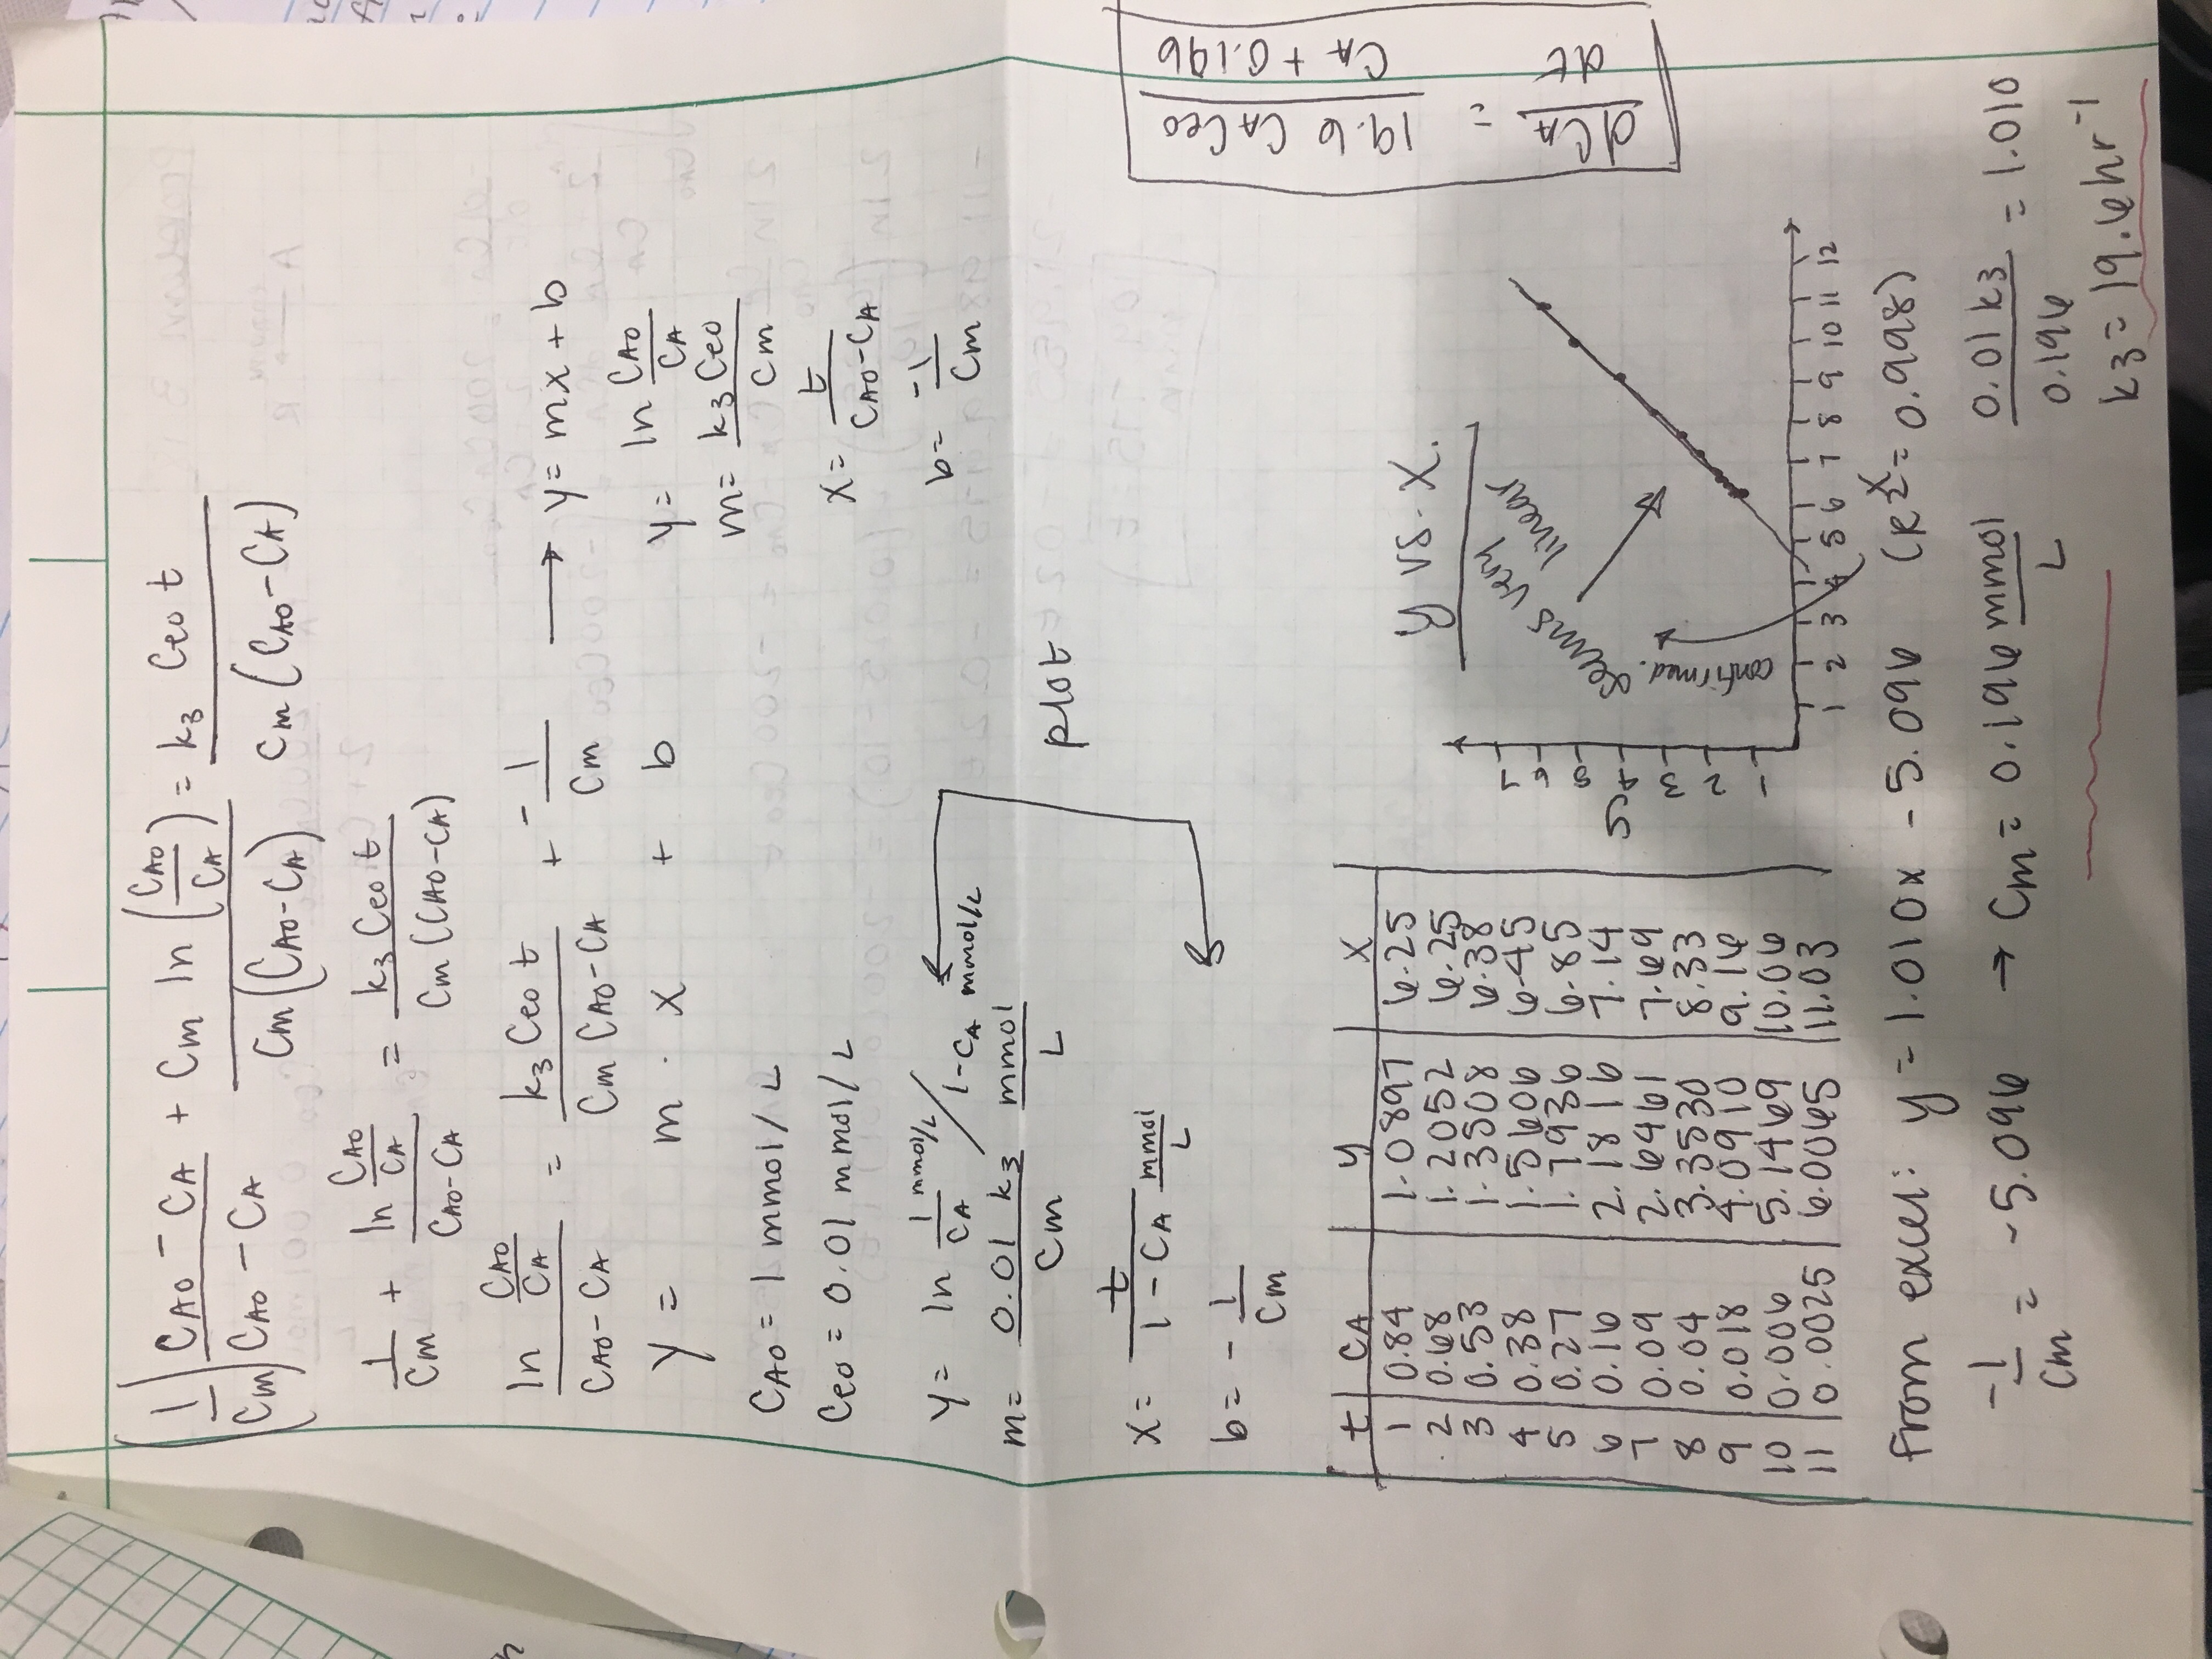 (1/Cm) (CAO - CA)/(CAO - CA) + Cm ln (CAO/CA)/(Cm (CAO-CA)) = k3 Ceo t/(Cm (CAO-CA))
1/Cm + ln CAO/CA/(CAO-CA) = k3 Ceo t/(Cm (CAO-CA))
ln CAO/CA/(CAO-CA) = k3 Ceo t/(Cm CAO-CA) + -1/Cm → y = mx + b
y = m · x + b
y = ln CAO/CA
m = k3 Ceo/Cm
CAO = 1 mmol/L
Ceo = 0.01 mmol/L
x = t/(CAO-CA)
b = -1/Cm
y = ln 1/CA mmol/L / 1-CA mmol/L
m = 0.01 k3/Cm mmol/L
plot
x = t/(1 - CA) mmol/L
b = - 1/Cm
t CA y x
1 0.84 1.0897 6.25
2 0.68 1.2052 6.25
3 0.53 1.3508 6.38
4 0.38 1.5606 6.45
5 0.27 1.7936 6.85
6 0.16 2.1816 7.14
7 0.09 2.6461 7.69
8 0.04 3.3530 8.33
9 0.018 4.0910 9.16
10 0.006 5.1469 10.06
11 0.0025 6.0065 11.03
y vs. x.
seems very
linear
confirmed.
y
7
6
5
4
3
2
1
1 2 3 4 5 6 7 8 9 10 11 12
x
dCA/dt = 19.6 CA Ceo/(CA + 0.196)
from excel: y = 1.010x - 5.096 (R2 = 0.998)
-1/Cm = -5.096 → Cm = 0.196 mmol/L
0.01 k3/0.196 = 1.010
k3 = 19.6 hr-1